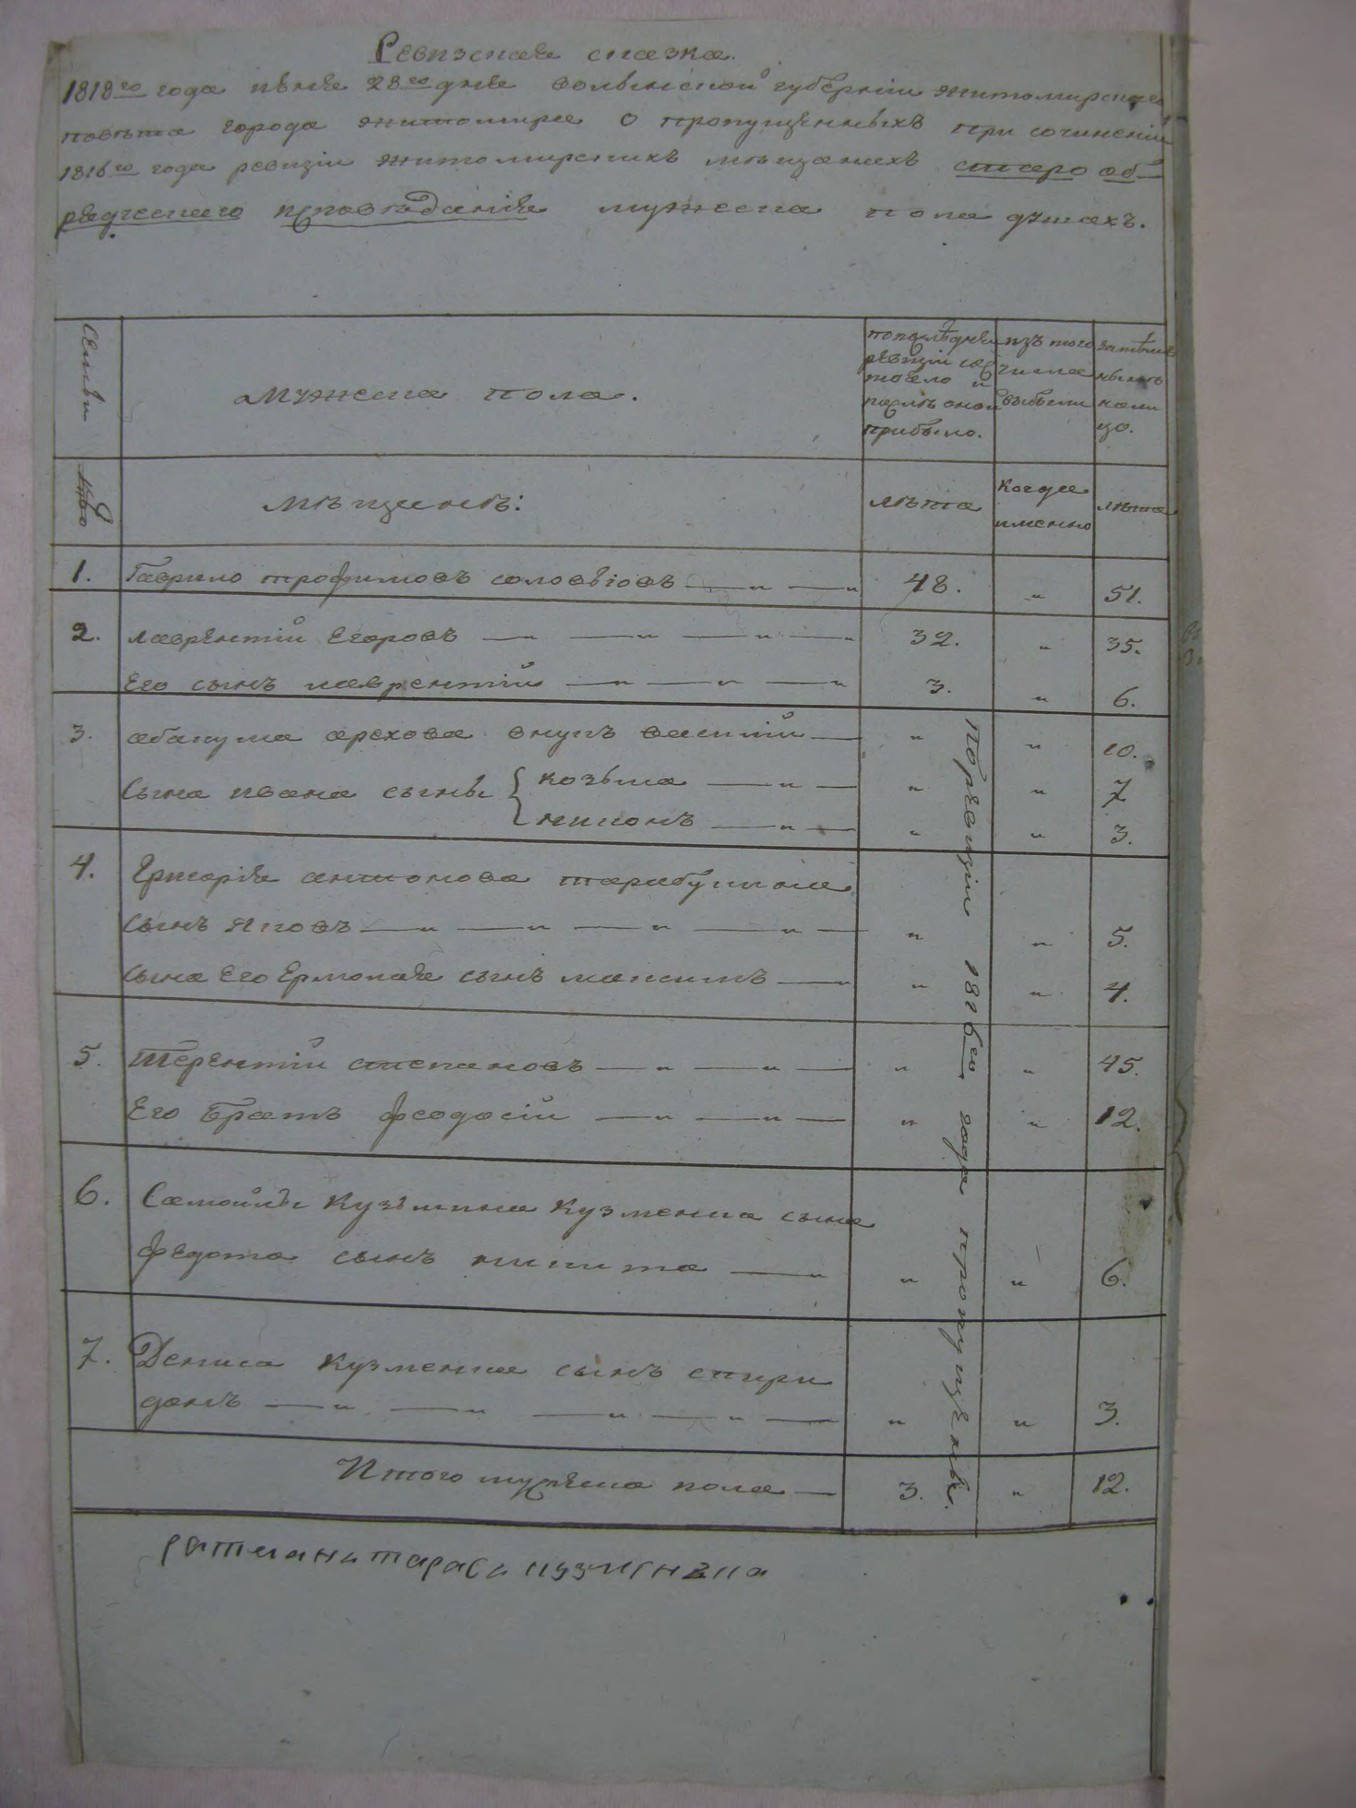 Ревизская сказка.
1818го года июня 28го дня волынской губернии житомирскаго
повѣта города житомира о пропущенныхъ при сочиненіи
1816го года ревизіи житомирскихъ мѣщанахъ старо об-
рядческаго исповѣданія мужеска пола душахъ.
Семьи
мужеска пола.
по послѣдней ревизіи состояло и послѣ оной прибыло.
изъ того числа выбыли
затѣмъ нынѣ на лицо.
мѣщанъ:
лѣта
когда именно
лѣта
1. Гаврило трофимовъ соловіовъ — „ — „ 48. „ 51.
2. лаврентій Егоровъ — „ — „ — „ — „ 32. „ 35.
Его сынъ лаврентій — „ — „ — „ 3. „ 6.
3. абакума арехова внукъ василій — „ „ 10.
сына ивана сыны { козьма — „ — „ „ 7
никонъ — „ — „ „ 3.
4. Григорія антонова тарабукина
сынъ яковъ — „ — „ — „ — „ — „ „ 5.
сына Его Ермолая сынъ максимъ — „ „ 4.
5. Терентій степановъ — „ — „ — „ „ 45.
Его братъ феодосій — „ — „ — „ „ 12.
6. Самойлы Кузьмина Кузменка сына
федота сынъ никита — „ „ „ 6.
7. Дениса Кузменка сынъ спири
донъ — „ — „ — „ — „ — „ „ 3.
по ревизіи 1816го года пропущены.
Итого мужеска пола — 3. „ 12.
ратмана тараса кузменка